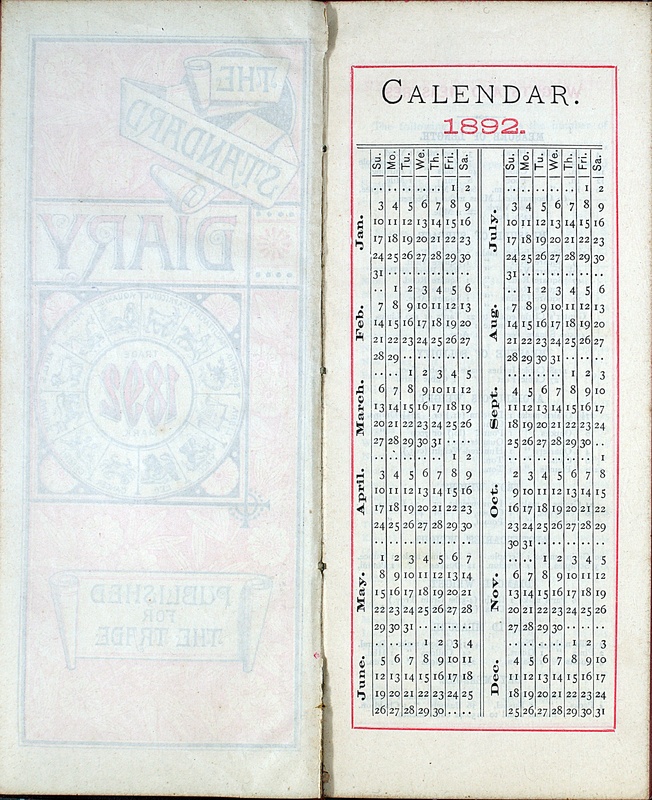 THE
STANDARD
DIARY
1892
PUBLISHED
FOR
THE TRADE
CALENDAR.
1892.
Su. Mo. Tu. We. Th. Fri. Sa.
Jan.
.. .. .. .. .. 1 2
3 4 5 6 7 8 9
10 11 12 13 14 15 16
17 18 19 20 21 22 23
24 25 26 27 28 29 30
31 .. .. .. .. .. ..
Feb.
.. 1 2 3 4 5 6
7 8 9 10 11 12 13
14 15 16 17 18 19 20
21 22 23 24 25 26 27
28 29 .. .. .. .. ..
March.
.. .. 1 2 3 4 5
6 7 8 9 10 11 12
13 14 15 16 17 18 19
20 21 22 23 24 25 26
27 28 29 30 31 .. ..
April.
.. .. .. .. .. 1 2
3 4 5 6 7 8 9
10 11 12 13 14 15 16
17 18 19 20 21 22 23
24 25 26 27 28 29 30
.. .. .. .. .. .. ..
May.
1 2 3 4 5 6 7
8 9 10 11 12 13 14
15 16 17 18 19 20 21
22 23 24 25 26 27 28
29 30 31 .. .. .. ..
June.
.. .. .. 1 2 3 4
5 6 7 8 9 10 11
12 13 14 15 16 17 18
19 20 21 22 23 24 25
26 27 28 29 30 .. ..
Su. Mo. Tu. We. Th. Fri. Sa.
July.
.. .. .. .. .. 1 2
3 4 5 6 7 8 9
10 11 12 13 14 15 16
17 18 19 20 21 22 23
24 25 26 27 28 29 30
31 .. .. .. .. .. ..
Aug.
.. 1 2 3 4 5 6
7 8 9 10 11 12 13
14 15 16 17 18 19 20
21 22 23 24 25 26 27
28 29 30 31 .. .. ..
Sept.
.. .. .. .. 1 2 3
4 5 6 7 8 9 10
11 12 13 14 15 16 17
18 19 20 21 22 23 24
25 26 27 28 29 30 ..
Oct.
.. .. .. .. .. .. 1
2 3 4 5 6 7 8
9 10 11 12 13 14 15
16 17 18 19 20 21 22
23 24 25 26 27 28 29
30 31 .. .. .. .. ..
Nov.
.. .. 1 2 3 4 5
6 7 8 9 10 11 12
13 14 15 16 17 18 19
20 21 22 23 24 25 26
27 28 29 30 .. .. ..
Dec.
.. .. .. .. 1 2 3
4 5 6 7 8 9 10
11 12 13 14 15 16 17
18 19 20 21 22 23 24
25 26 27 28 29 30 31